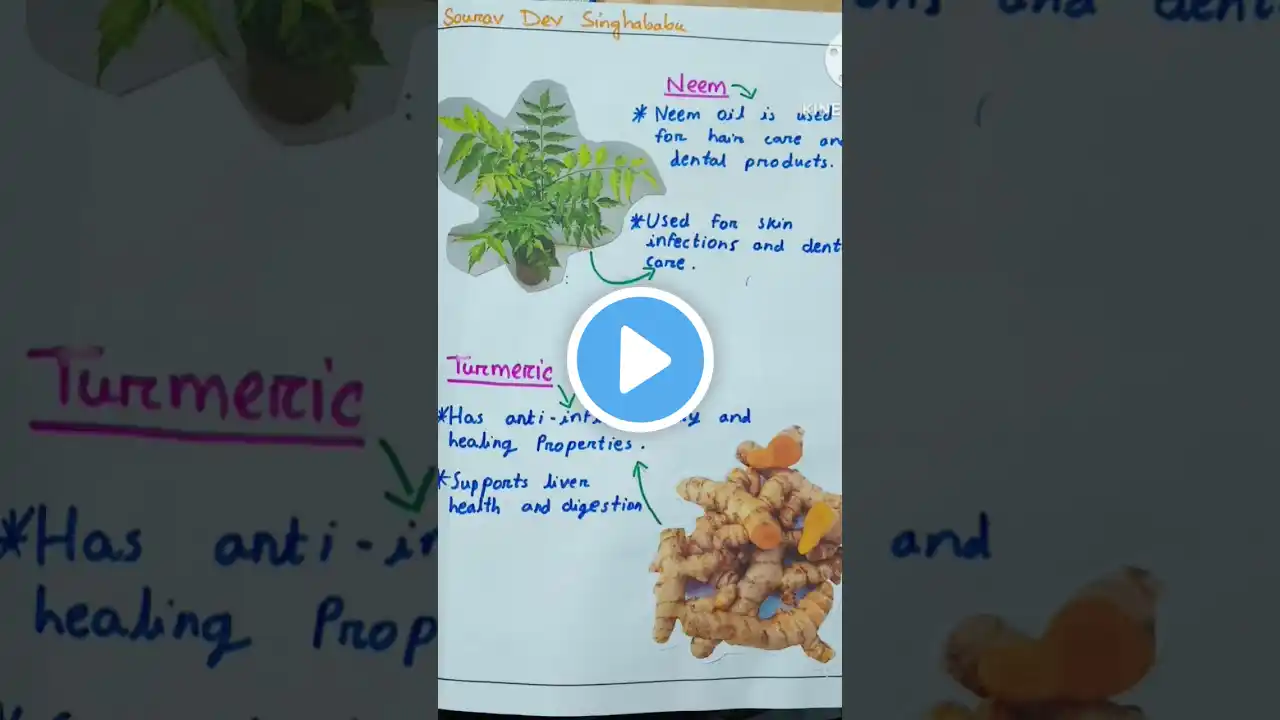 Sourav Dev Singhababu
Neem
* Neem oil is used
for hair care
dental products.
* Used for skin
infections and
care.
Turmeric
* Has anti- and
healing Properties.
* Supports liver
health and digestion